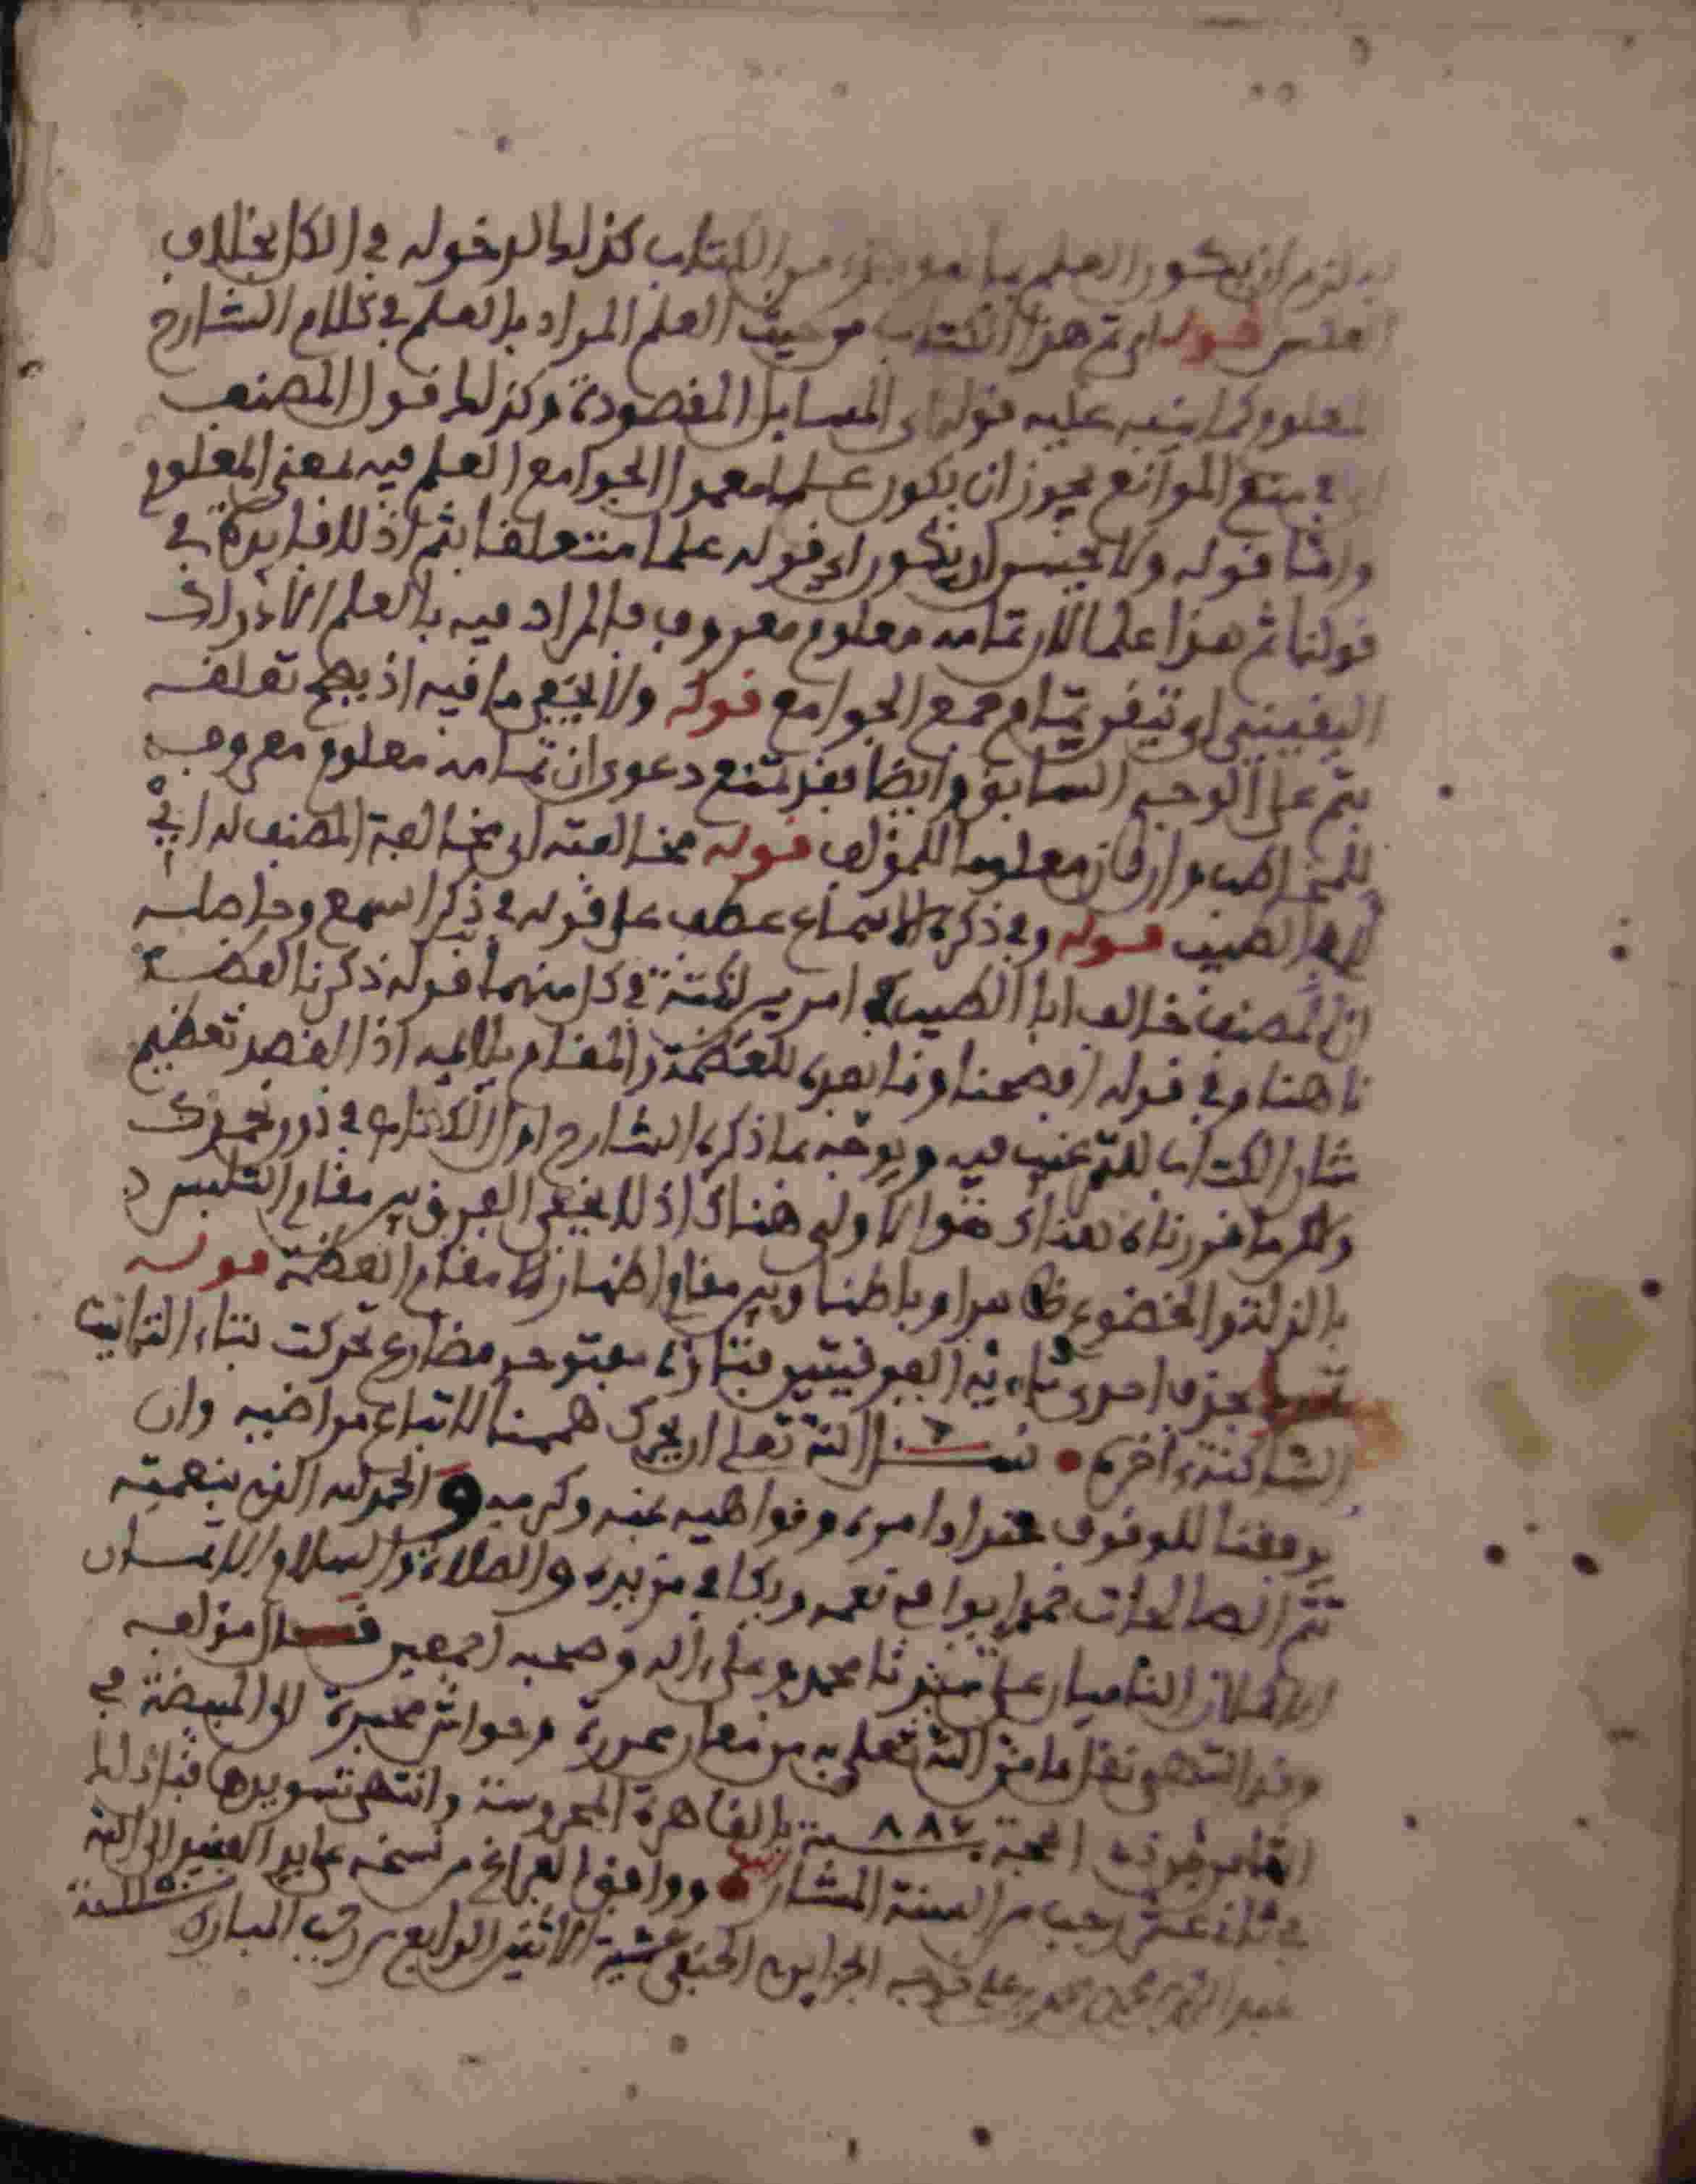 يلزم ان يكون العلم بها من الكتاب كذلك لدخوله في الكل بخلاف
العكس قوله اي تم هذا الكتاب من حيث العلم المراد بالعلم في كلام الشارح
المعلوم كما ينبه عليه قوله اي المسايل المقصودة وكذلك قول المصنف
في منع الموانع يجوز ان يكون علما معمول الجوامع العلم فيه بمعنى المعلوم
واما قوله ولا يحسن ان يكون اي قوله علما متعلقا بتم اذ لا فايدة في
قولنا تم هذا علما لان تمامه معلوم معروف فالمراد فيه بالعلم الادراك
اليقيني اي تيقن تمام جمع الجوامع قوله ولا يخفى ما فيه اذ يصح تعلقه
بتم على الوجه السابق وايضا فقد تمنع دعوى ان تمامه معلوم معروف
للمخاطب وان كان معلوما للمؤلف قوله مخالفته اي مخالفة المصنف له اي
لابي الطيب قوله وفي ذكره الاسماع عطف على قوله في ذكر اسمع وحاصله
ان المصنف خالف ابا الطيب في امرين لنكتة في كل منهما قوله ذكرنا العظمة
ناهنا وفي قوله افصحنا وما بعده للعظمة والمقام ملايمه اذ القصد تعظيم
شان الكتاب للترغيب فيه ويوجه بما ذكره الشارح اول الكتاب في نون نحمدك
ولكن ما قررناه هناك هو الاولى هناك اذ لا يخفى الفرق بين مقام التلبس
بالذلة والخضوع ظاهرا وباطنا وبين مقام اظهار مقام العظمة قوله
بحذف احدى تاءيه الفوقيتين فتاؤه مفتوحة مضارع تحركت بتاء التانيث
الساكنة اخره نسأل الله تعالى ان يحرك هممنا لاتباع مراضيه وان
يوفقنا للوقوف عند اوامره ونواهيه بمنه وكرمه والحمد لله الذي بنعمته
تتم الصالحات حمدا يوافي نعمه ويكافي مزيده والصلاة والسلام الاتمان
الاكملان الناميان على سيدنا محمد وعلى اله وصحبه اجمعين قال مؤلفه
وقد انتهى نقل ما من الله تعلى به من نقول محررة وحواش محبرة الى المبيضة في
الحجة سنة ٨٨٧ بالقاهرة المحروسة وانتهى تسويدها قبل ذلك
في ثاني عشر رجب من السنة المشار ووافق الفراغ من نسخه على يد الفقير الى الله
محمد بن علي خوجه الجزايري الحنفي عشية الاثنين الرابع من رجب المبارك سنة